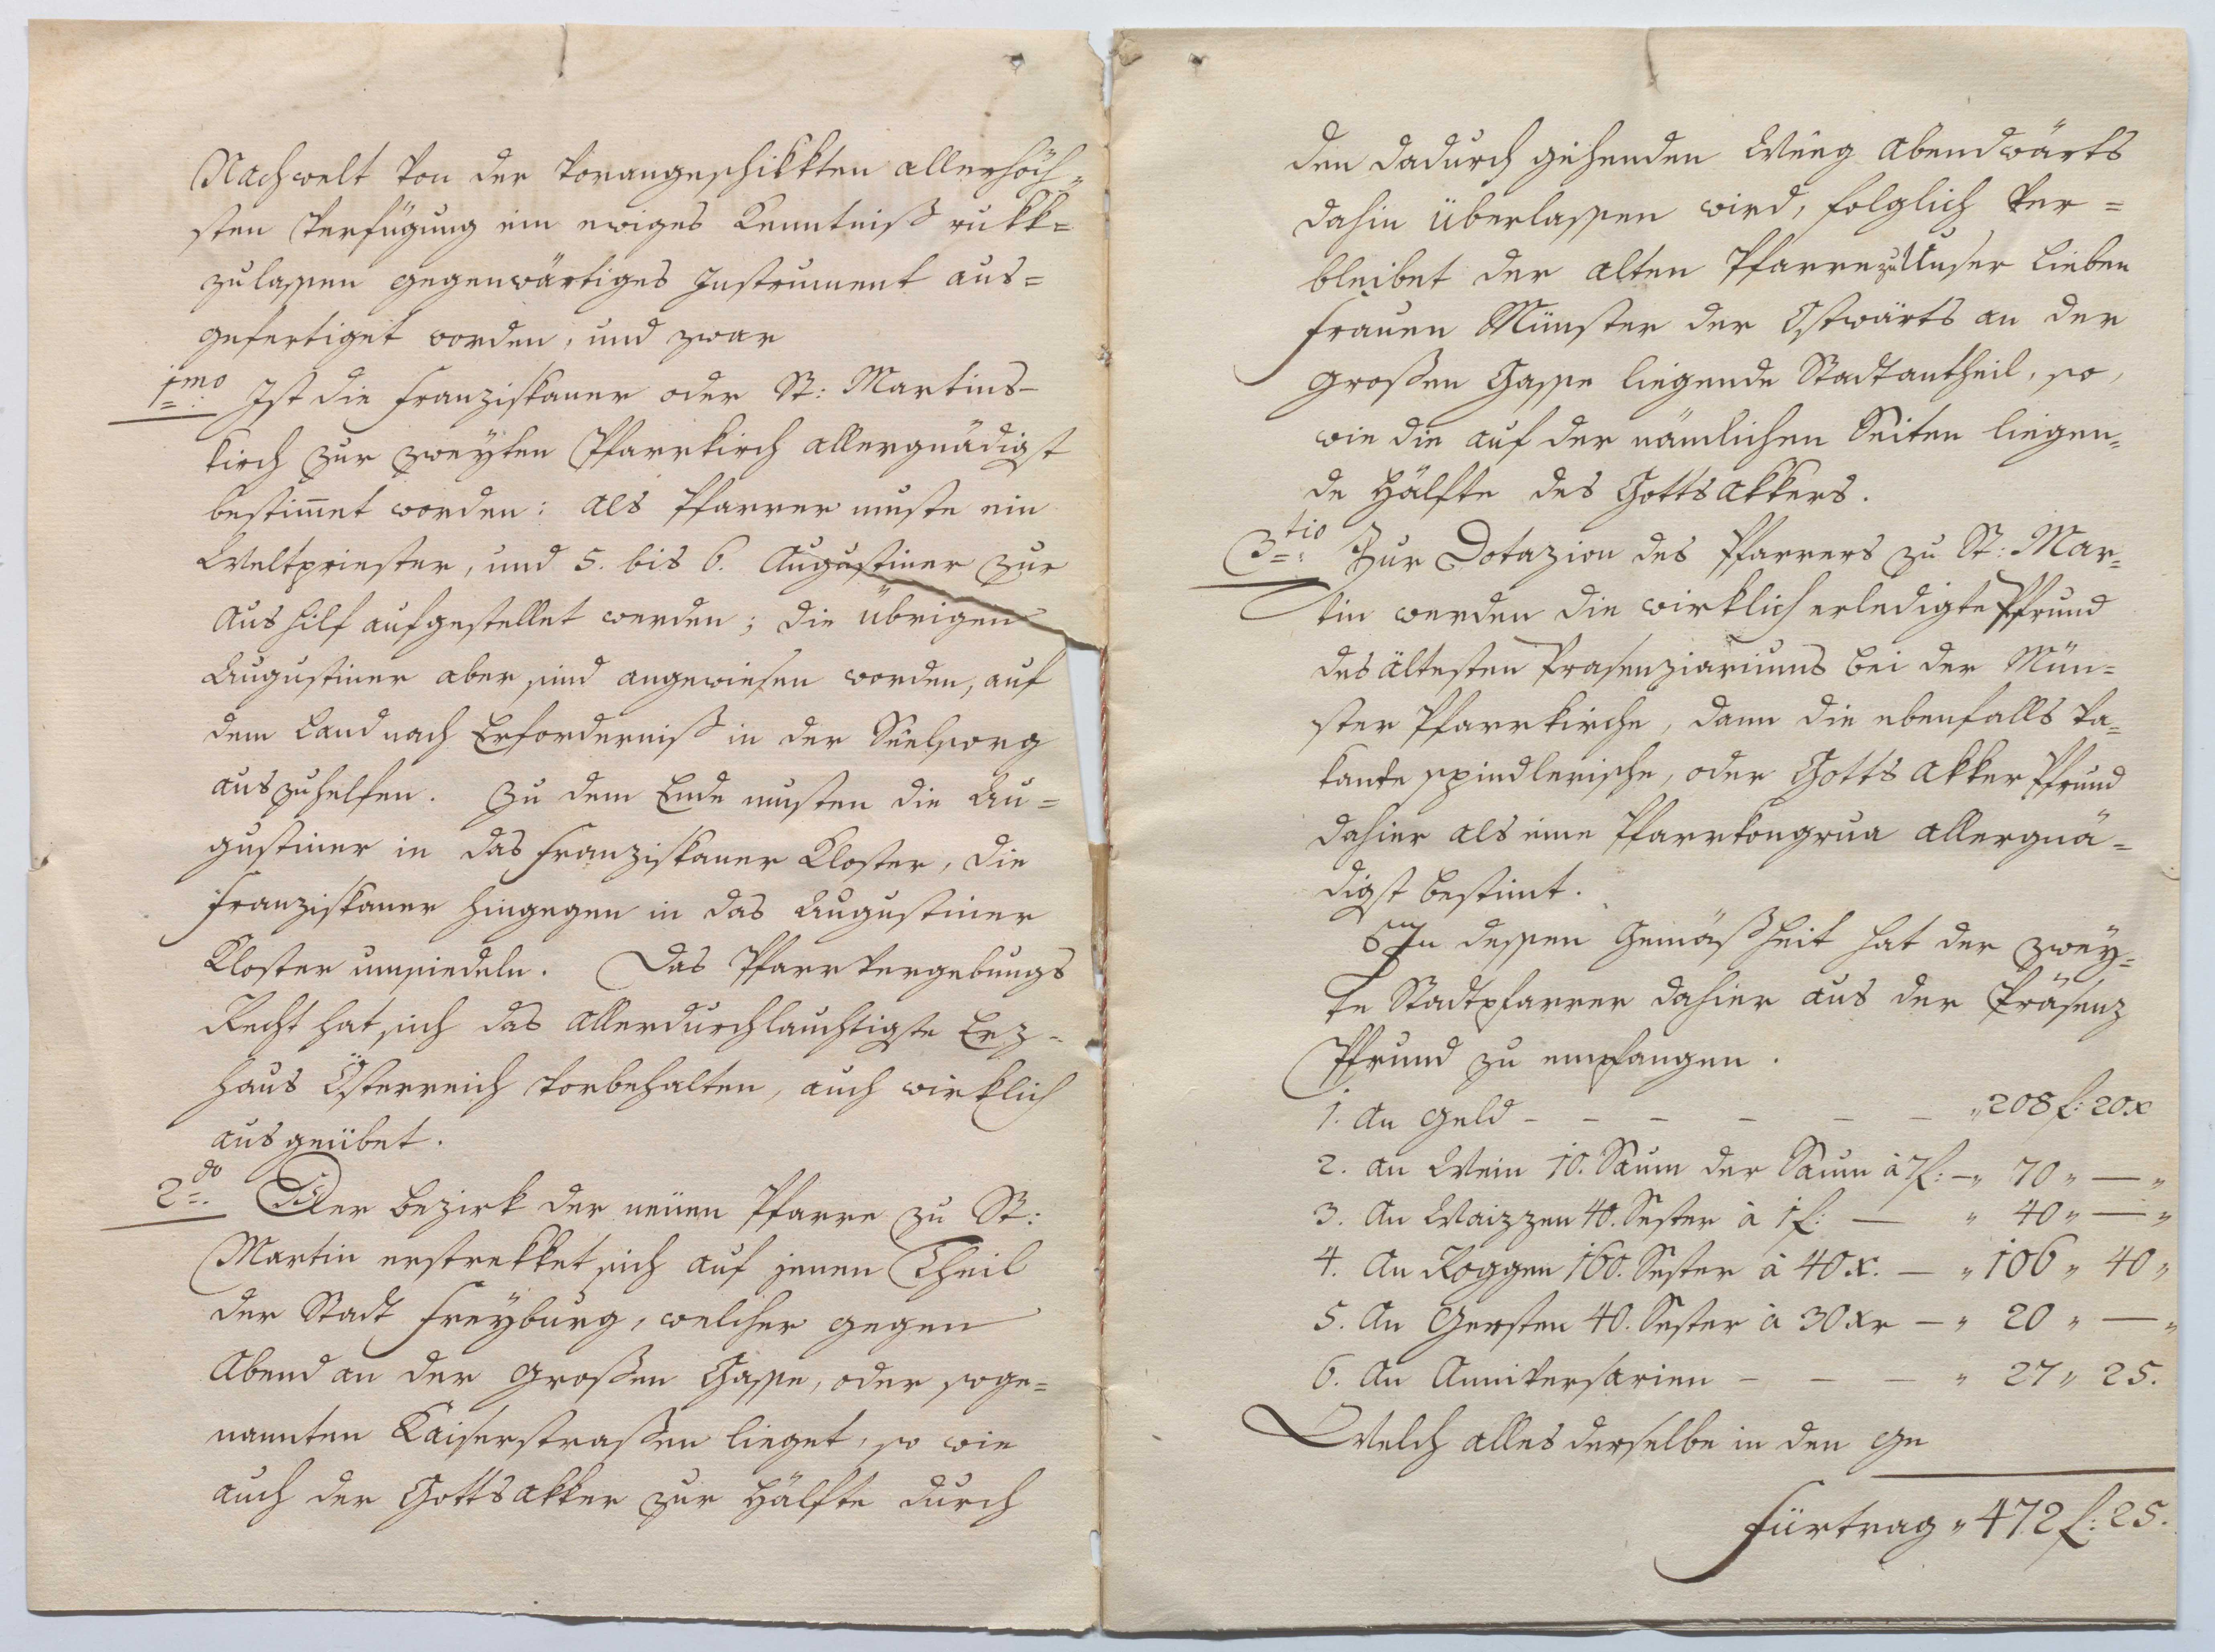 Nachwelt von der vorangeschikkten allerhöch=
sten Verfügung ein ewiges Kenntniß rukk=
zulassen gegenwärtiges Instrument aus=
gefertiget worden, und zwar
1mo Ist die Franziskaner oder St: Martins-
kirch zur zweyten Pfarrkirch allergnädigst
bestim̄et worden: als Pfarrer muste ein
Weltpriester, und 5. bis 6. Augustiner zur
Aushilf aufgestellet werden; die übrigen
Augustiner aber sind angewiesen worden, auf
dem Land nach Erforderniß in der Seelsorg
auszuhelfen. Zu dem Ende musten die Au=
gustiner in das Franziskaner Kloster, die
Franziskaner hingegen in das Augustiner
Kloster umsiedeln. Das Pfarrvergebungs
Recht hat sich das Allerdurchlauchtigste Erz=
haus Österreich vorbehalten, auch wirklich
ausgeübet.
2do Der Bezirk der neüen Pfarre zu St:
Martin erstrekket sich auf jenen Theil
der Stadt Freyburg, welcher gegen
Abend an der großen Gasse, oder soge=
nannten Kaiserstraßen lieget, so wie
auch der Gottsakker zur Hälfte durch
den dadurch gehenden Weeg Abendwärts
dahin überlassen wird, folglich ver=
bleibet der alten Pfarre zu Unser Lieben
Frauen Münster der Ostwärts an der
großen Gasse liegende Stadtantheil, so,
wie die auf der nämlichen Seiten liegen=
de Hälfte des Gottsakkers.
3tio Zur Dotazion des Pfarrers zu St: Mar=
tin werden die wirklich erledigte Pfrund
des ältesten Präsenziariums bei der Mün=
ster Pfarrkirche, dann die ebenfalls va=
kante spindlerische, oder Gotts akker Pfrund
dahier als eine Pfarrkongrua allergnä=
digst bestimt.
In dessen Gemäßheit hat der zwey=
te Stadtpfarrer dahier aus der Präsenz
Pfrund zu empfangen.
1. An Geld - - - - - - „ 208 f: 20x
2. An Wein 10. Saum der Saum à 7f: — „ 70 „ — „
3. An Waizzen 40. Sester à 1 f: — „ 40 „ — „
4. An Roggen 160. Sester à 40x. — „ 106 „ 40 „
5. An Gersten 40. Sester à 30xr — „ 20 „ — „
6. An Anniversarien - - - „ 27 „ 25.
Welch alles derselbe in den ge
Fürtrag „ 472 f: 25.